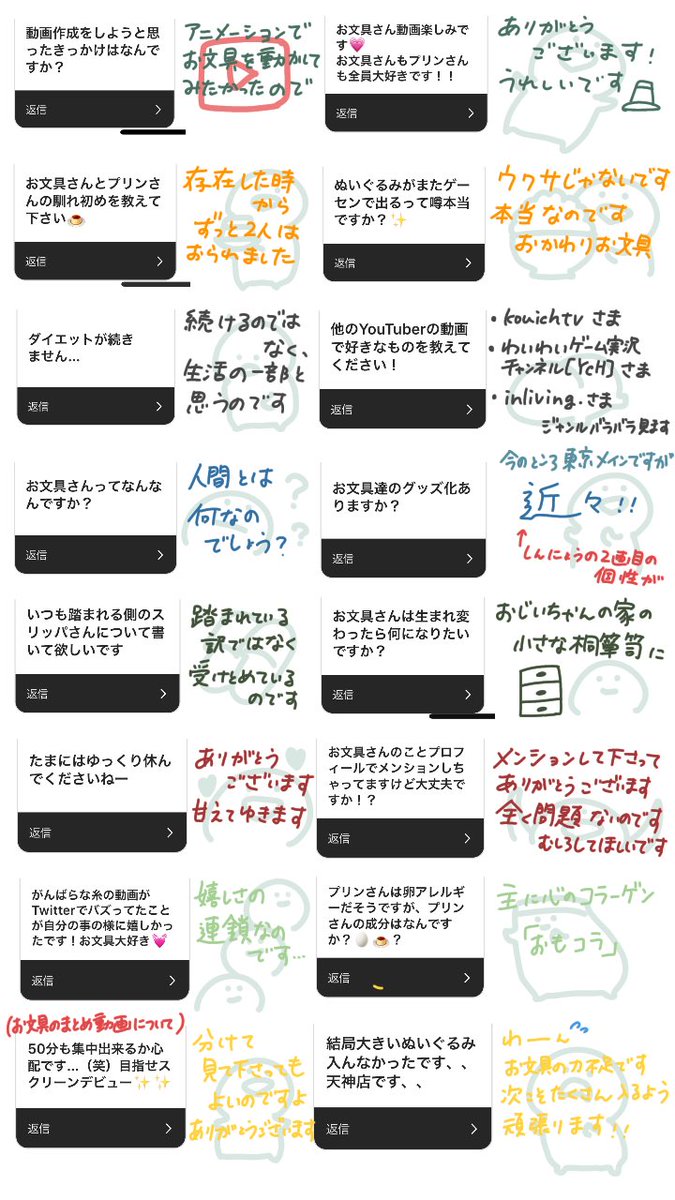 動画作成をしようと思
ったきっかけはなんで
すか？
返信
アニメーションで
お文具を動かして
みたかったので
お文具さん動画楽しみで
す💗
お文具さんもプリンさん
も全員大好きです！！
返信
ありがとう
ございます！
うれしいです
お文具さんとプリンさ
んの馴れ初めを教えて
下さい🍮
返信
存在した時
から
ずっと2人は
おられました
ぬいぐるみがまたゲー
センで出るって噂本当
ですか？✨
返信
ウワサじゃないです
本当なのです
おかわりお文具
ダイエットが続き
ません...
返信
続けるのでは
なく、
生活の一部と
思うのです
他のYouTuberの動画
で好きなものを教えて
ください！
返信
・kouichtv さま
・わいわいゲーム実況
チャンネル[YcH]さま
・inliving.さま
ジャンルバラバラ見ます
お文具さんってなんな
んですか？
返信
人間とは
何なの
でしょう？
？
？
？
お文具達のグッズ化あ
りますか？
返信
今のところ東京メインですが
近々!!
↑
しんにょうの2画目の
個性が
いつも踏まれる側のス
リッパさんについて書
いて欲しいです
返信
踏まれている
訳ではなく
受けとめている
のです
お文具さんは生まれ変
わったら何になりたい
ですか？
返信
おじいちゃんの家の
小さな桐箪笥に
たまにはゆっくり休ん
でくださいねー
返信
ありがとう
ございます
甘えてゆきます
お文具さんのことプロフ
ィールでメンションしち
ゃってますけど大丈夫で
すか！？
返信
メンションして下さって
ありがとうございます
全く問題ないのです
むしろしてほしいです
がんばらな糸の動画が
Twitterでバズってたこと
が自分の事の様に嬉しかっ
たです！お文具大好き💓
返信
嬉しさの
連鎖なの
です...
プリンさんは卵アレルギ
ーだそうですが、プリン
さんの成分はなんです
か？🥚🍮？
返信
主に心のコラーゲン
「おもコラ」
(お文具のまとめ動画について)
50分も集中出来るか心
配です...（笑）目指せス
クリーンデビュー✨✨
返信
分けて
見て下さっても
よいのですよ
ありがとうございます
結局大きいぬいぐるみ
入んなかったです、、
天神店です、、
返信
わーん
お文具の力不足です
次こそたくさん入るよう
頑張ります!!